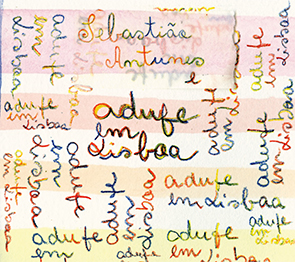 Sebastião
Antunes
e
adufe
em
Lisboa
adufe
em
Lisboa
adufe
em
Lisboa
adufe
em Lisboa
adufe
em
Lisboa
adufe
em
Lisboa
adufe
em Lisboa
adufe
em
Lisboa
adufe
em Lisboa
adufe
em
Lisboa
adufe
em Lisboa
adufe
em Lisboa
adufe
em
Lisboa
adufe
em
adufe
em Lisboa
adufe